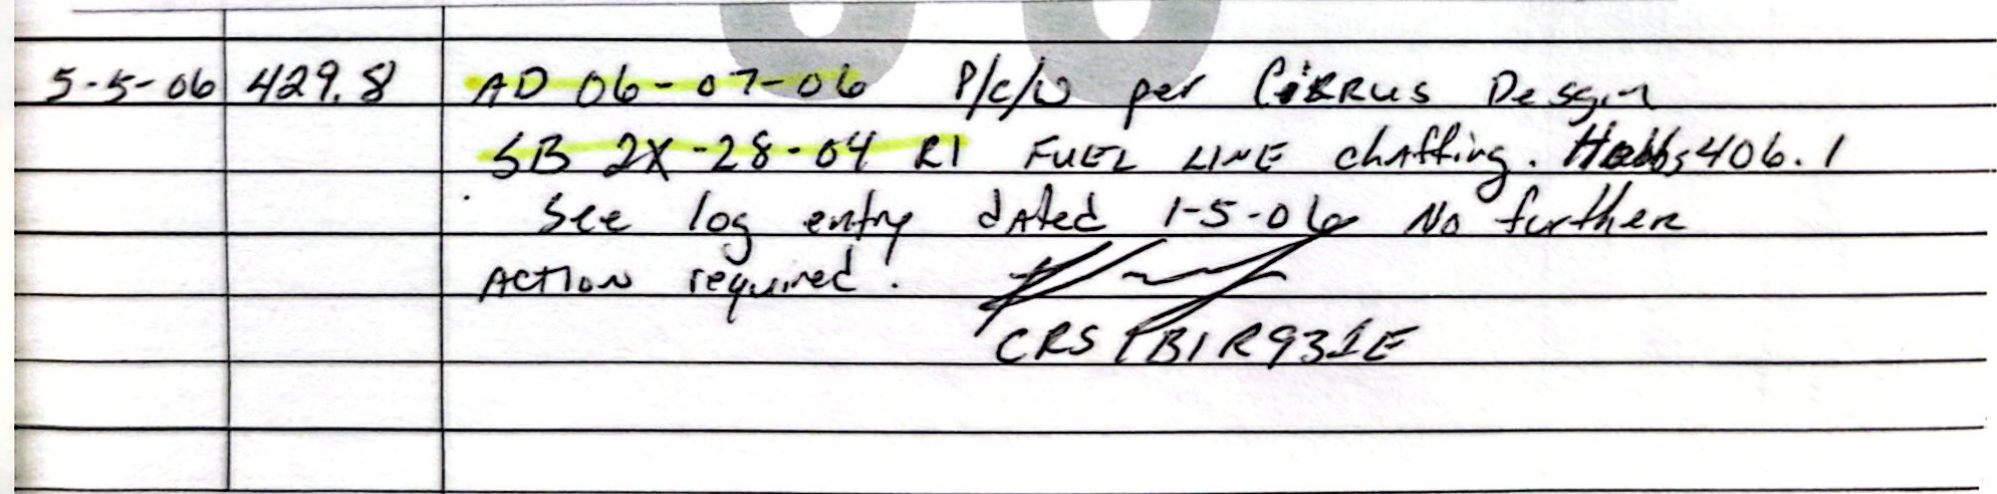 5-5-06 429.8 AD 06-07-06 P/c/w per CiRRUS Design
SB 2X-28-04 R1 FUEL LINE chaffing. Hobbs 406.1
See log entry dated 1-5-06 No further
ACTION required.
CRS PB1R931E